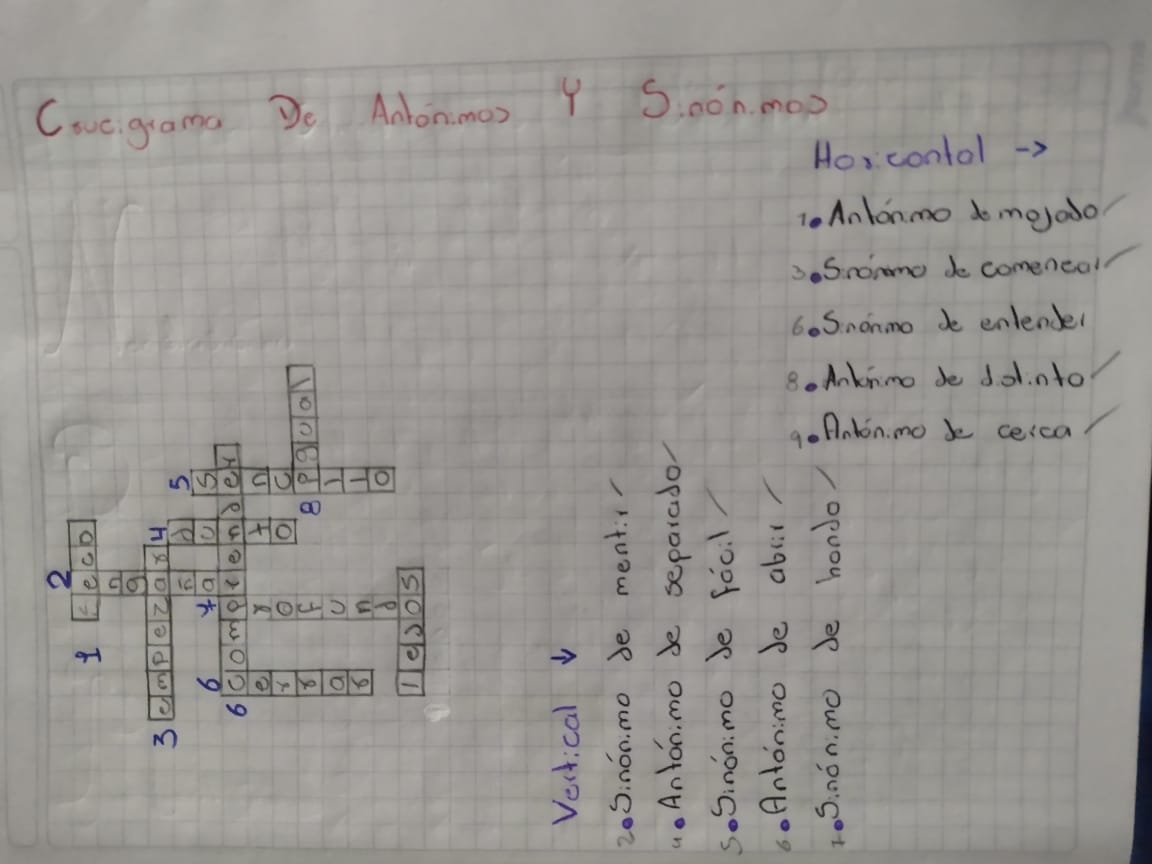 Crucigrama De Antónimos Y Sinónimos
Horizontal ->
1. Antónimo de mojado
3. Sinónimo de comenzar
6. Sinónimo de entender
8. Antónimo de distinto
9. Antónimo de cerca
Vertical ↓
2. Sinónimo de mentir
4. Antónimo de separado
5. Sinónimo de fácil
6. Antónimo de abrir
7. Sinónimo de hondo
1 seco
2 engañar
3 empezar
4 junto
5 sencillo
6 comprender
6 cerrar
7 profundo
8 igual
lejos